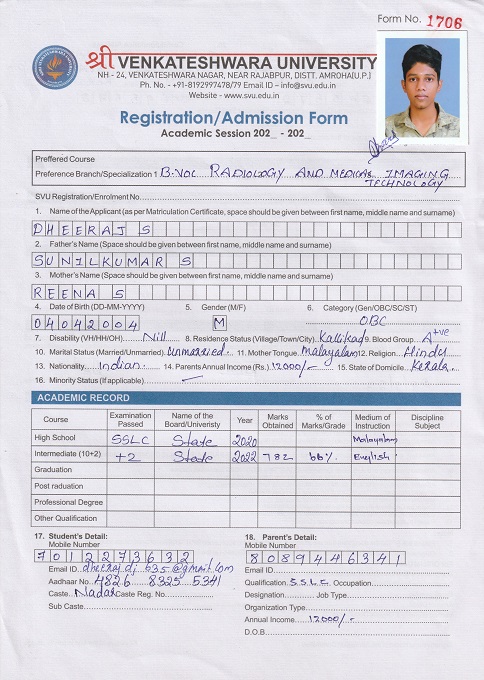 Form No. 1706
श्री VENKATESHWARA UNIVERSITY
NH - 24, VENKATESHWARA NAGAR, NEAR RAJABPUR, DISTT. AMROHA(U.P.)
Ph. No. - +91-8192997478/79 Email ID – info@svu.edu.in
Website - www.svu.edu.in
Registration/Admission Form
Academic Session 202_ - 202_
Preffered Course
Preference Branch/Specialization 1 B.VOC RADIOLOGY AND MEDICAL IMAGING TECHNOLOGY
SVU Registration/Enrolment No.
1. Name of the Applicant (as per Matriculation Certificate, space should be given between first name, middle name and surname)
DHEERAJ S
2. Father's Name (Space should be given between first name, middle name and surname)
SUNILKUMAR S
3. Mother's Name (Space should be given between first name, middle name and surname)
REENA S
4. Date of Birth (DD-MM-YYYY) 5. Gender (M/F) 6. Category (Gen/OBC/SC/ST)
04042004 M OBC
7. Disability (VH/HH/OH) Nill 8. Residence Status (Village/Town/City) Kallikad 9. Blood Group A+ve
10. Marital Status (Married/Unmarried) Unmarried 11. Mother Tongue Malayalam 12. Religion Hindu
13. Nationality Indian 14. Parents Annual Income (Rs.) 12000/- 15. State of Domicile Kerala
16. Minority Status (If applicable)
ACADEMIC RECORD
Course Examination Passed Name of the Board/Univeristy Year Marks Obtained % of Marks/Grade Medium of Instruction Discipline Subject
High School SSLC State 2020 Malayalam
Intermediate (10+2) +2 State 2022 782 66% English
Graduation
Post raduation
Professional Degree
Other Qualification
17. Student's Detail:
Mobile Number
7012273632
Email ID dheerajdj635@gmail.com
Aadhaar No. 4826 8325 5341
Caste Nadar Caste Reg. No.
Sub Caste
18. Parent's Detail:
Mobile Number
8089446341
Email ID
Qualification S.S.L.C. Occupation
Designation Job Type
Organization Type
Annual Income 12000/-
D.O.B